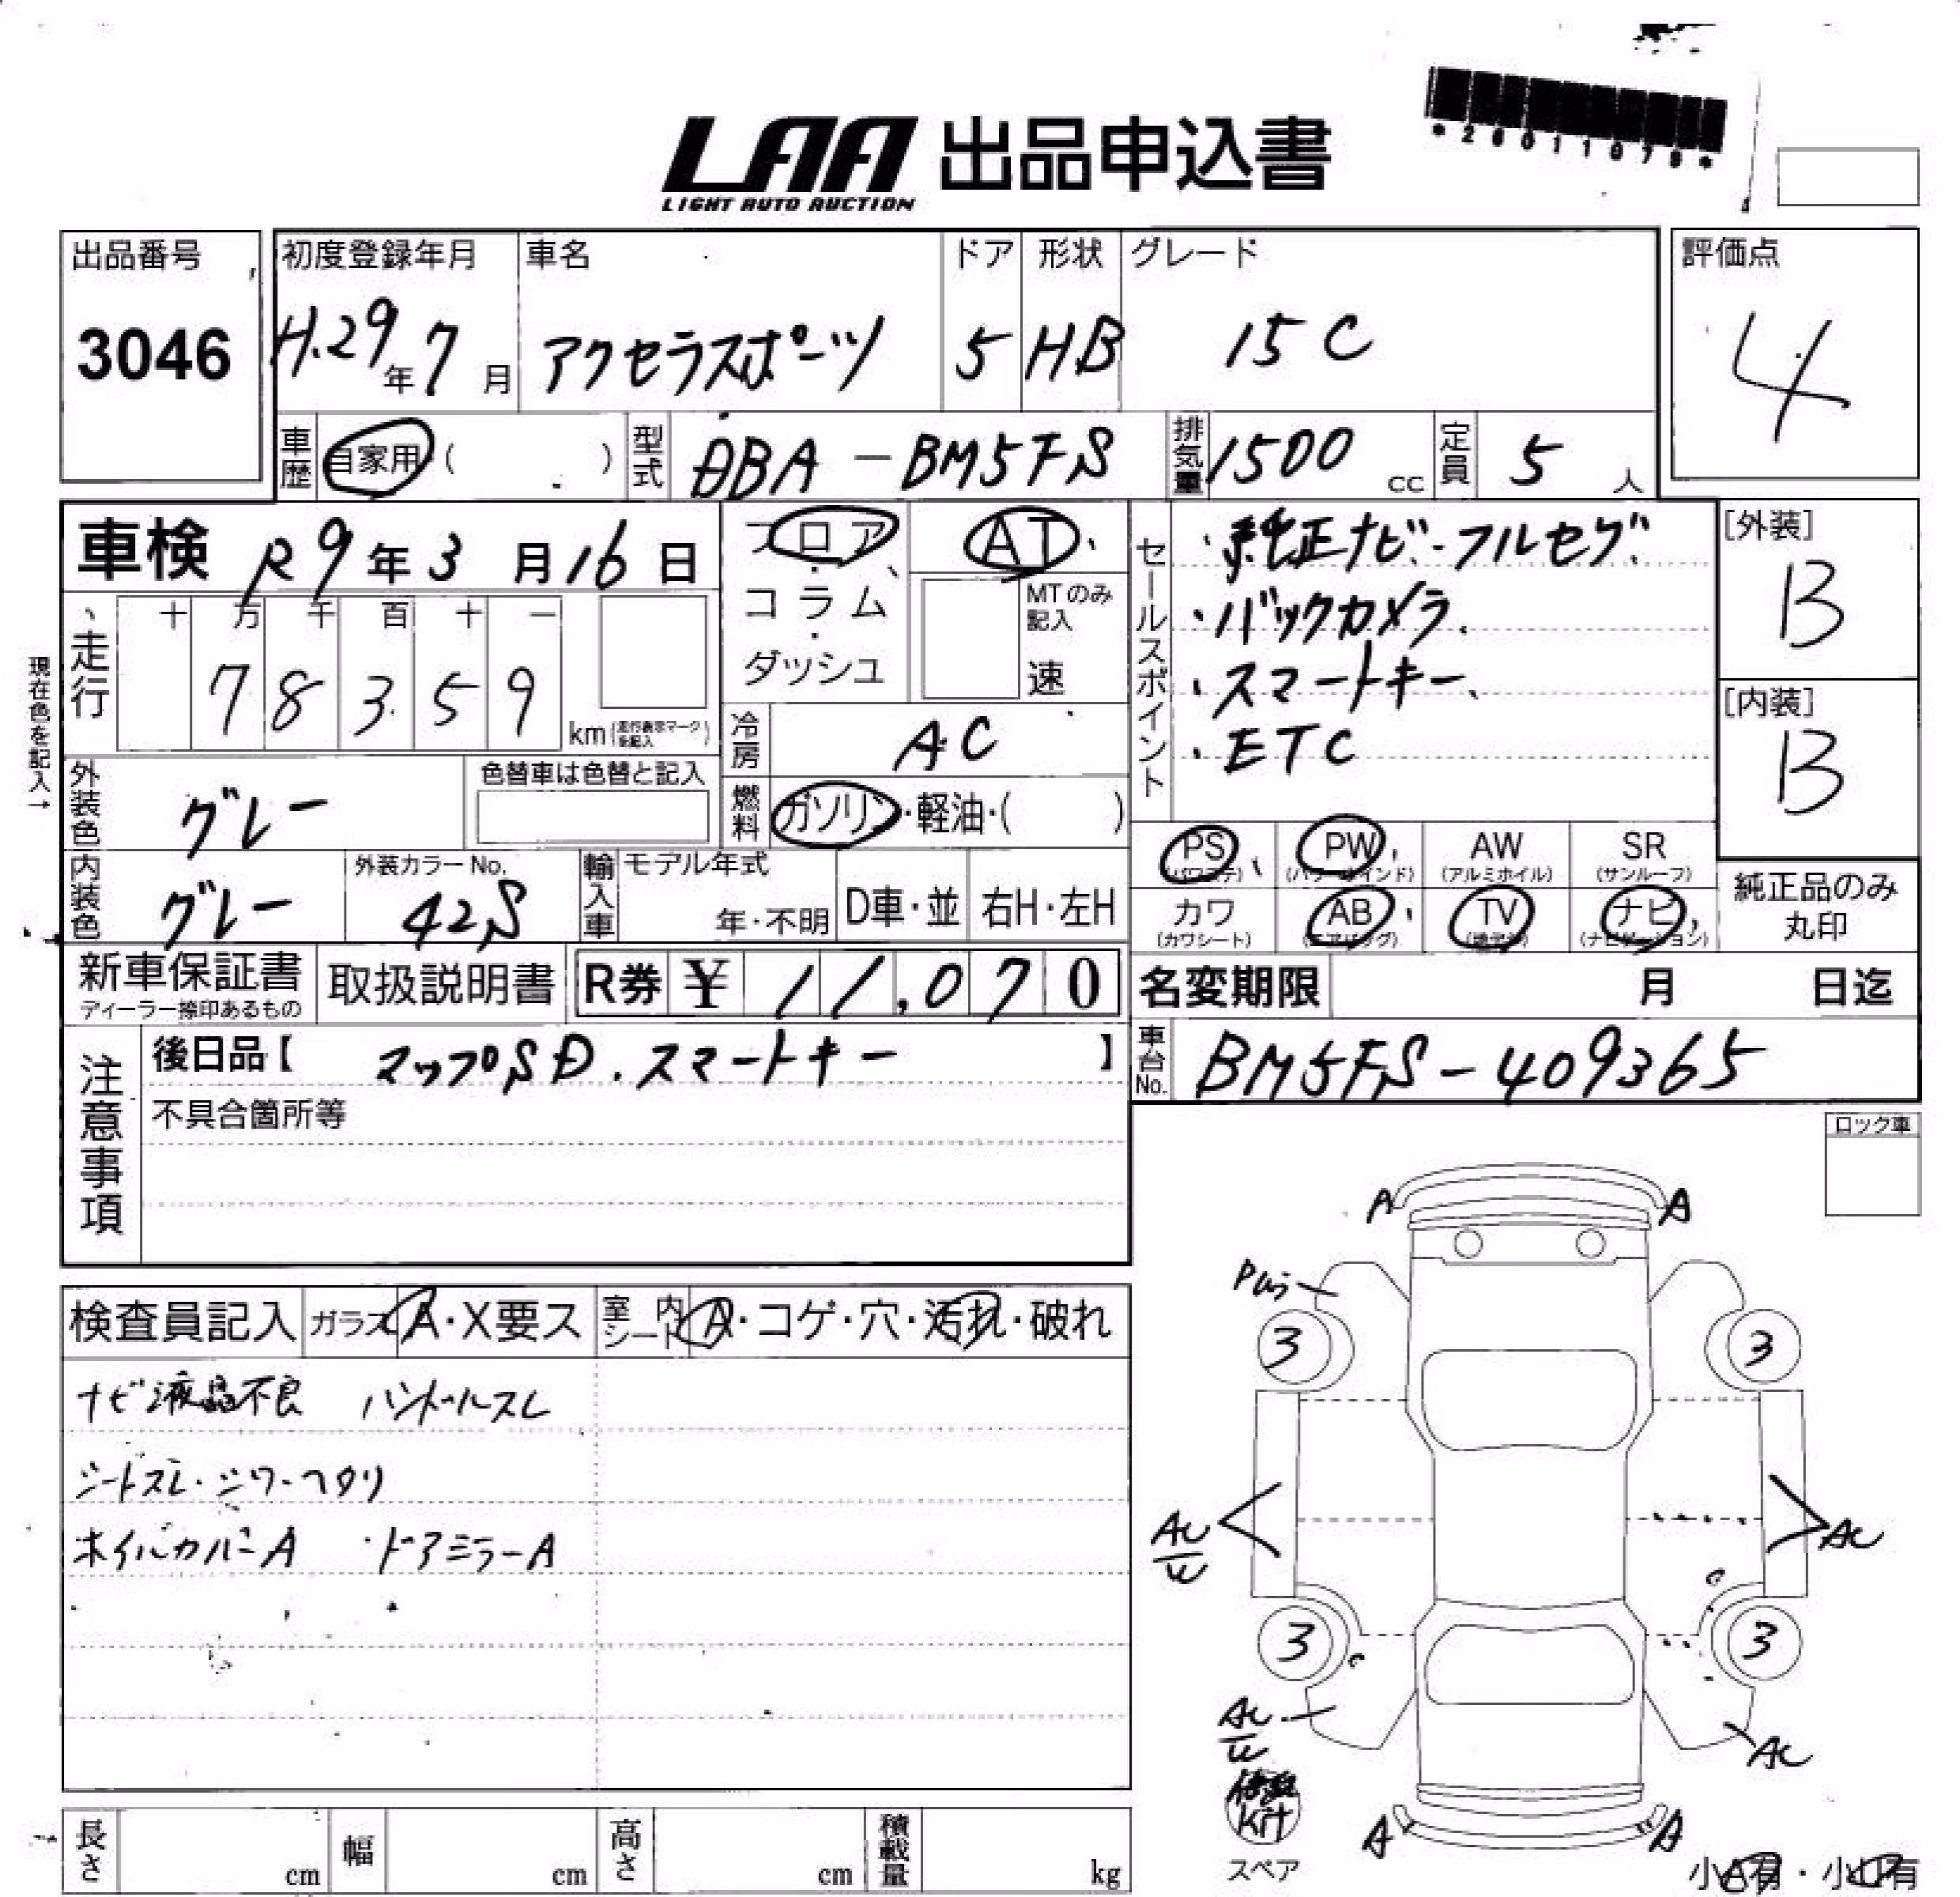 *26011078*
LAA 出品申込書
LIGHT AUTO AUCTION
出品番号
3046
初度登録年月
H.29年7月
車名
アクセラスポーツ
ドア
5
形状
HB
グレード
15C
評価点
4
車歴 自家用 ( )
型式 DBA-BM5FS
排気量 1500 cc
定員 5 人
車検 R9年3月16日
フロア・コラム・ダッシュ
AT
MTのみ記入
速
セールスポイント
・純正ナビ・フルセグ
・バックカメラ
・スマートキー
・ETC
[外装]
B
[内装]
B
現在色を記入→
走行
十 万 千 百 十 一
7 8 3 5 9
km(走行表示マークを記入)
冷房 AC
外装色 グレー
色替車は色替と記入
燃料 ガソリン・軽油・( )
PS (パワステ)
PW (パワーウインド)
AW (アルミホイル)
SR (サンルーフ)
カワ (カワシート)
AB (エアバッグ)
TV (地デジ)
ナビ (ナビゲーション)
純正品のみ丸印
内装色 グレー
外装カラーNo.
42S
輸入車
モデル年式
年・不明
D車・並
右H・左H
新車保証書
ディーラー捺印あるもの
取扱説明書
R券 ¥ 11,070
名変期限 月 日迄
注意事項
後日品【 マップSD.スマートキー 】
不具合箇所等
車台No. BM5FS-409365
ロック車
検査員記入
ガラス A・X要ス
室内シート A・コゲ・穴・汚れ・破れ
ナビ液晶不良 ハンドルスレ
シートスレ・シワ・ヘタリ
ホイルカバーA ドアミラーA
A A
3 3
AU
W
AU
3 3
AU
W
AU
修理
Kit
スペア
A A
小A有・小U有
長さ cm
幅 cm
高さ cm
積載量 kg